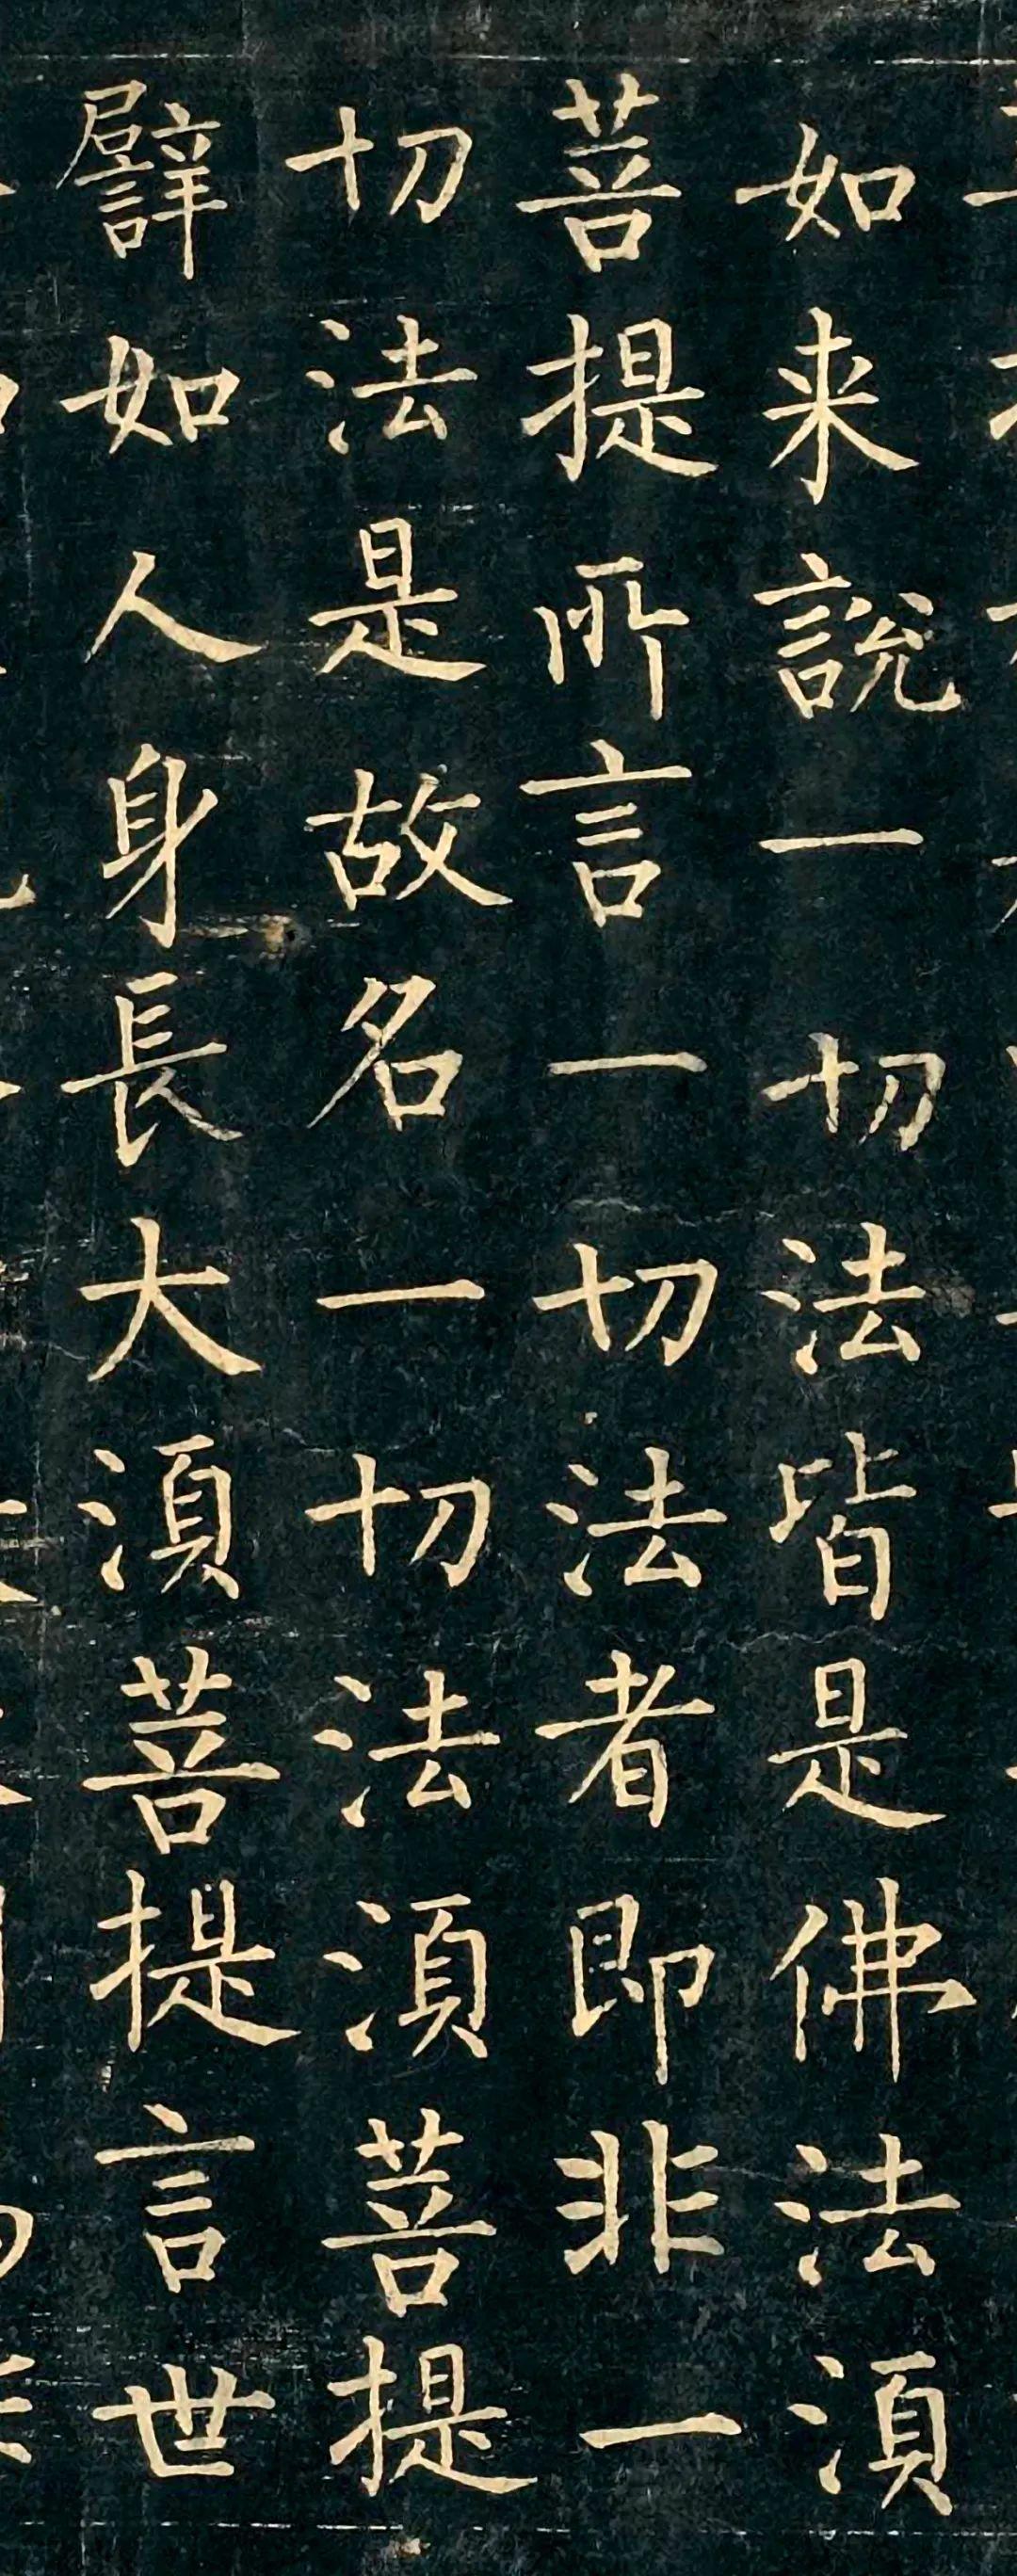 如来說一切法皆是佛法湏
菩提所言一切法者即非一
切法是故名一切法湏菩提
譬如人身長大湏菩提言世